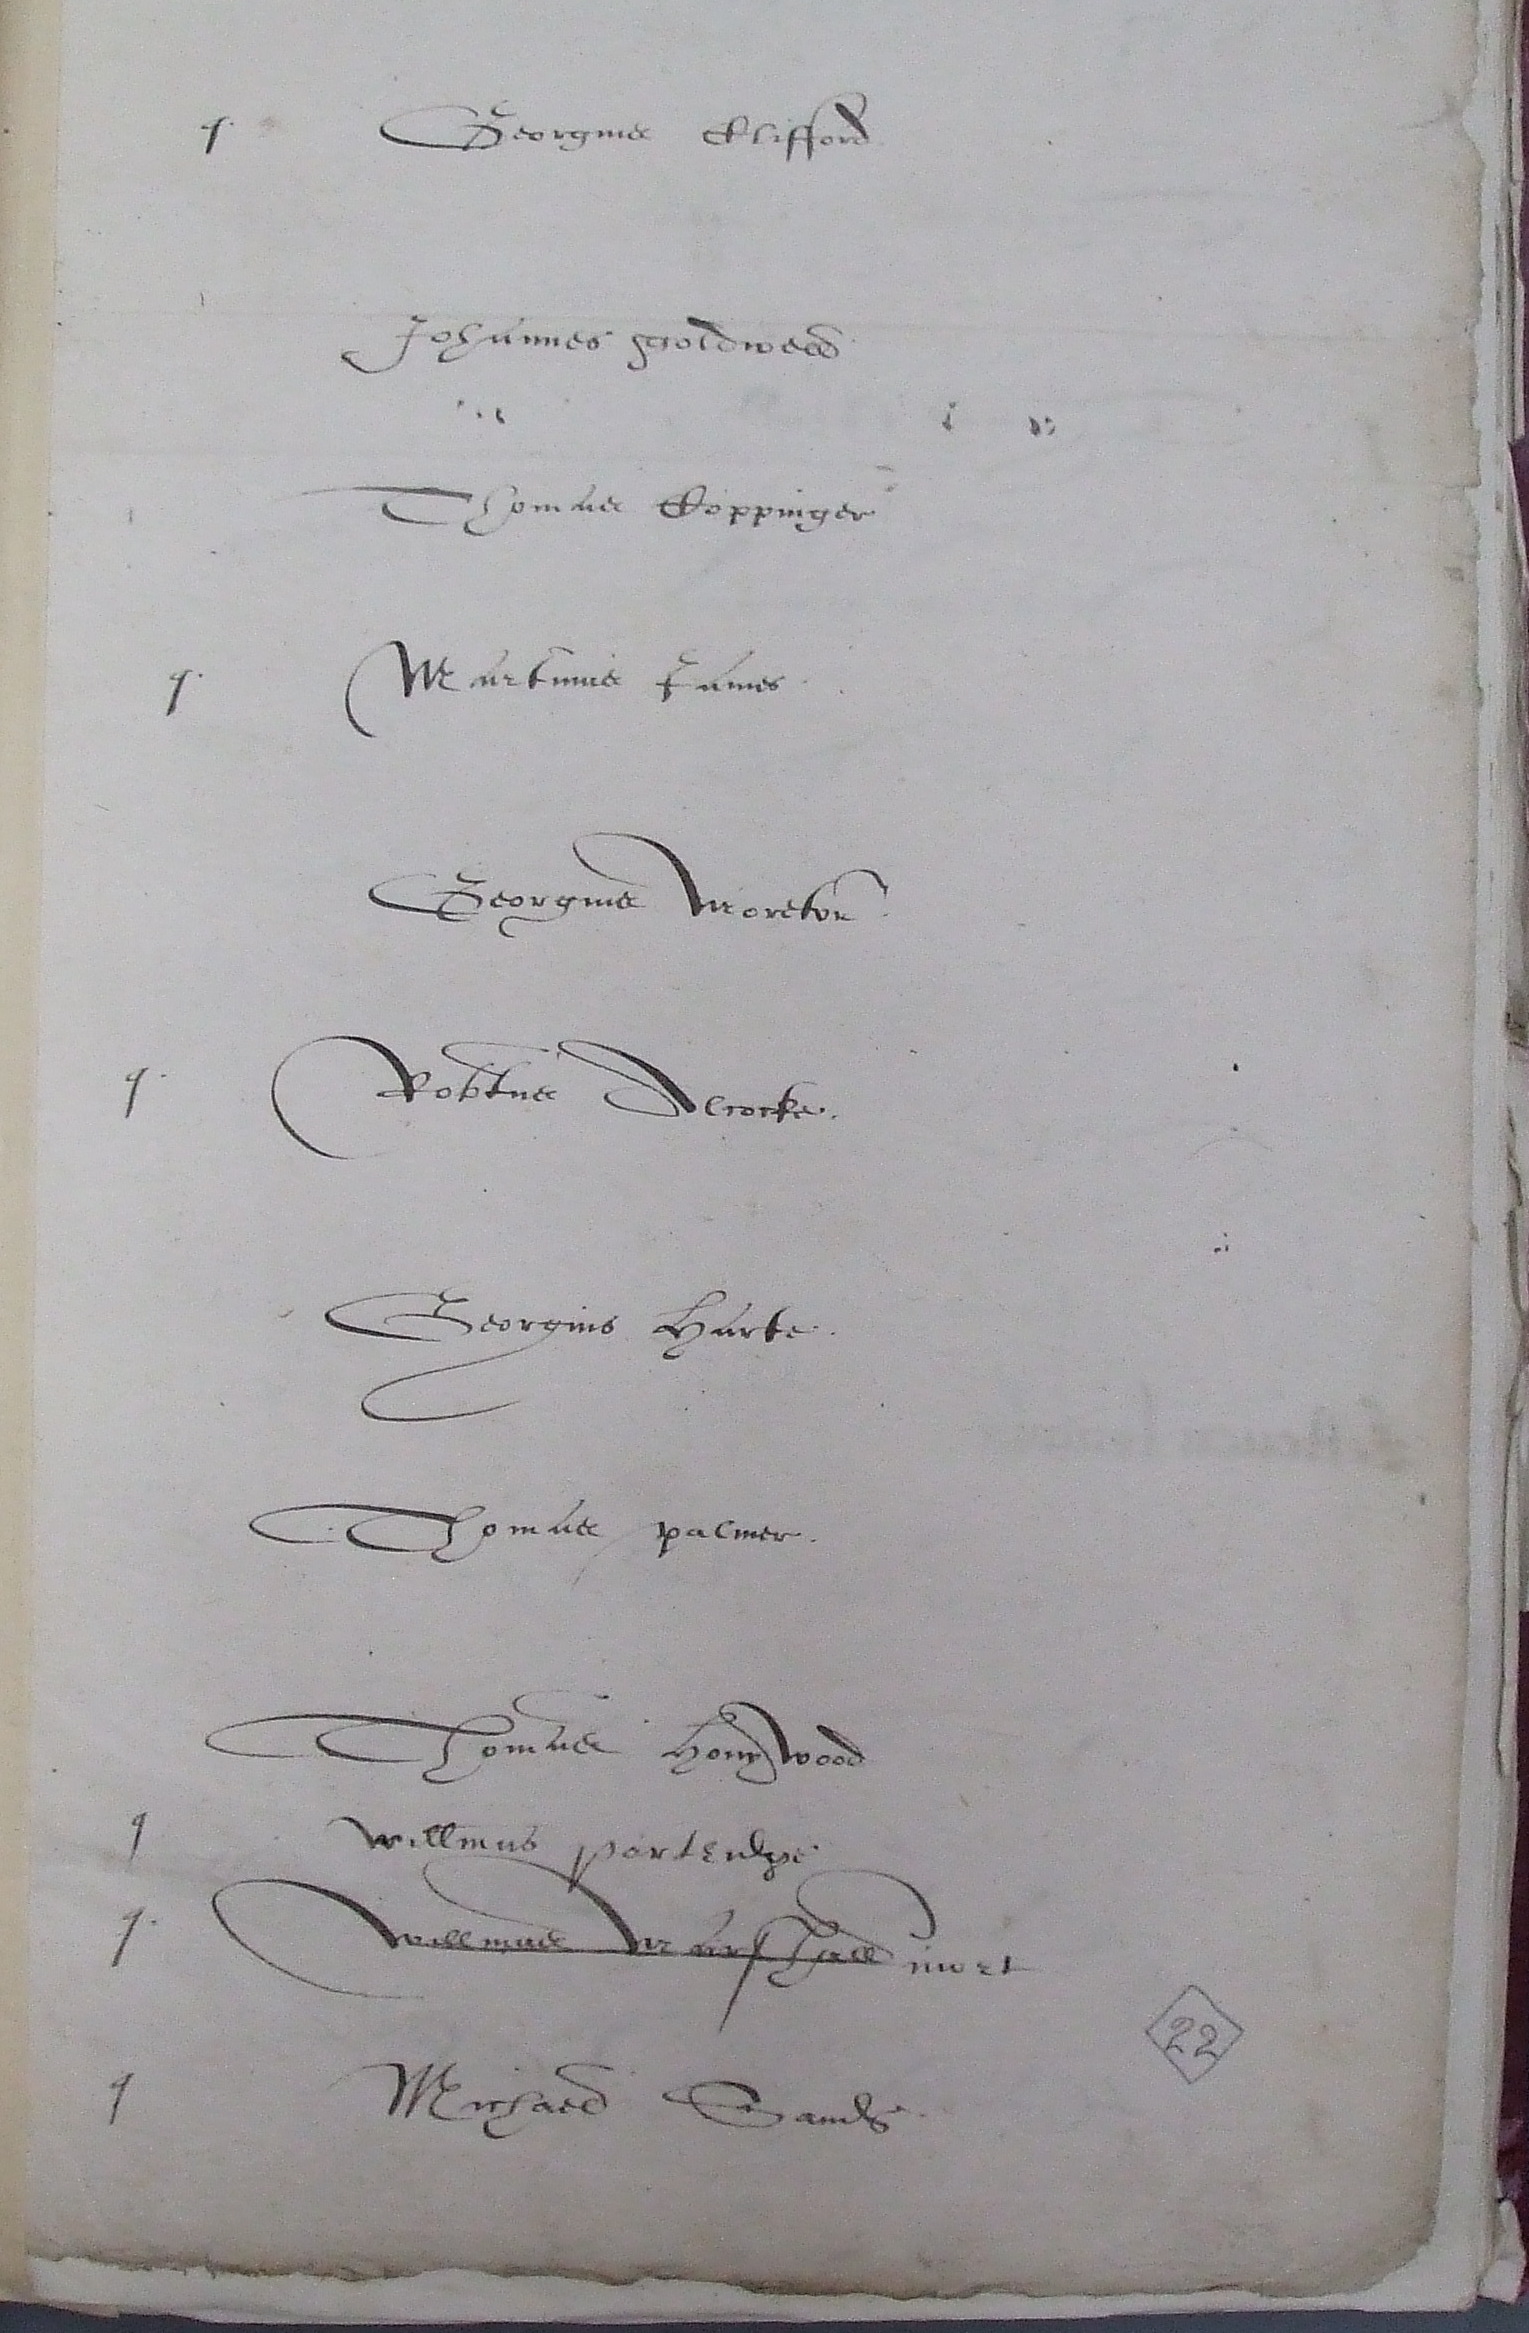 q. Georgius Clifford
Johannes goldwell
Thomas Coppinger
q. Martinus James
Georgius Moreton
q. Robtus Alcocke.
Georgius Harte.
Thomas palmer.
Thomas honywood
q willmus partridge
q. Willmus Marshall mort
22
q Michaell Sands